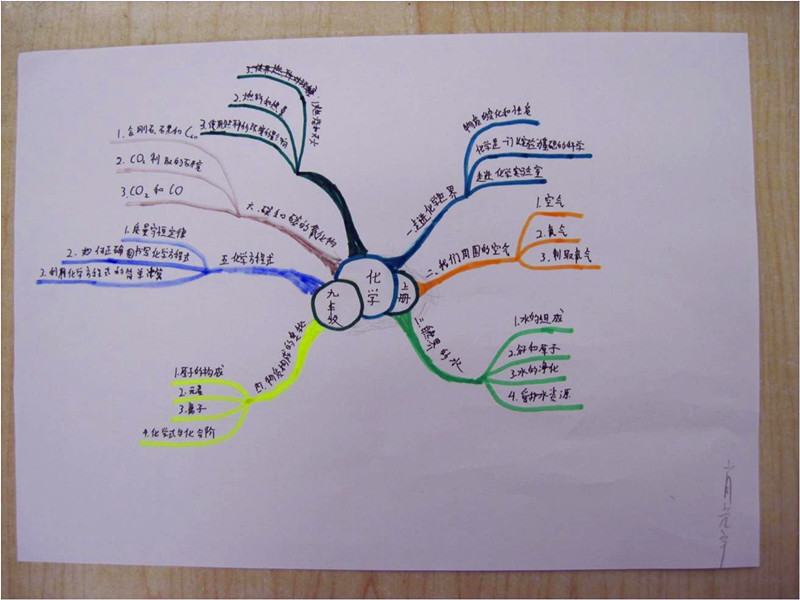 化学
九年级
上册
一走进化学世界
物质的变化和性质
化学是一门以实验为基础的科学
走进化学实验室
二、我们周围的空气
1.空气
2.氧气
3.制取氧气
三、自然界的水
1.水的组成
2.分子和原子
3.水的净化
4.爱护水资源
四.物质构成的奥秘
1.原子的构成
2.元素
3.离子
4.化学式与化合价
五.化学方程式
1.质量守恒定律
2.如何正确书写化学方程式
3.利用化学方程式的简单计算
六.碳和碳的氧化物
1.金刚石、石墨和C60
2.CO2制取的研究
3.CO2和CO
2.燃料和热量
3.使用燃料对环境的影响